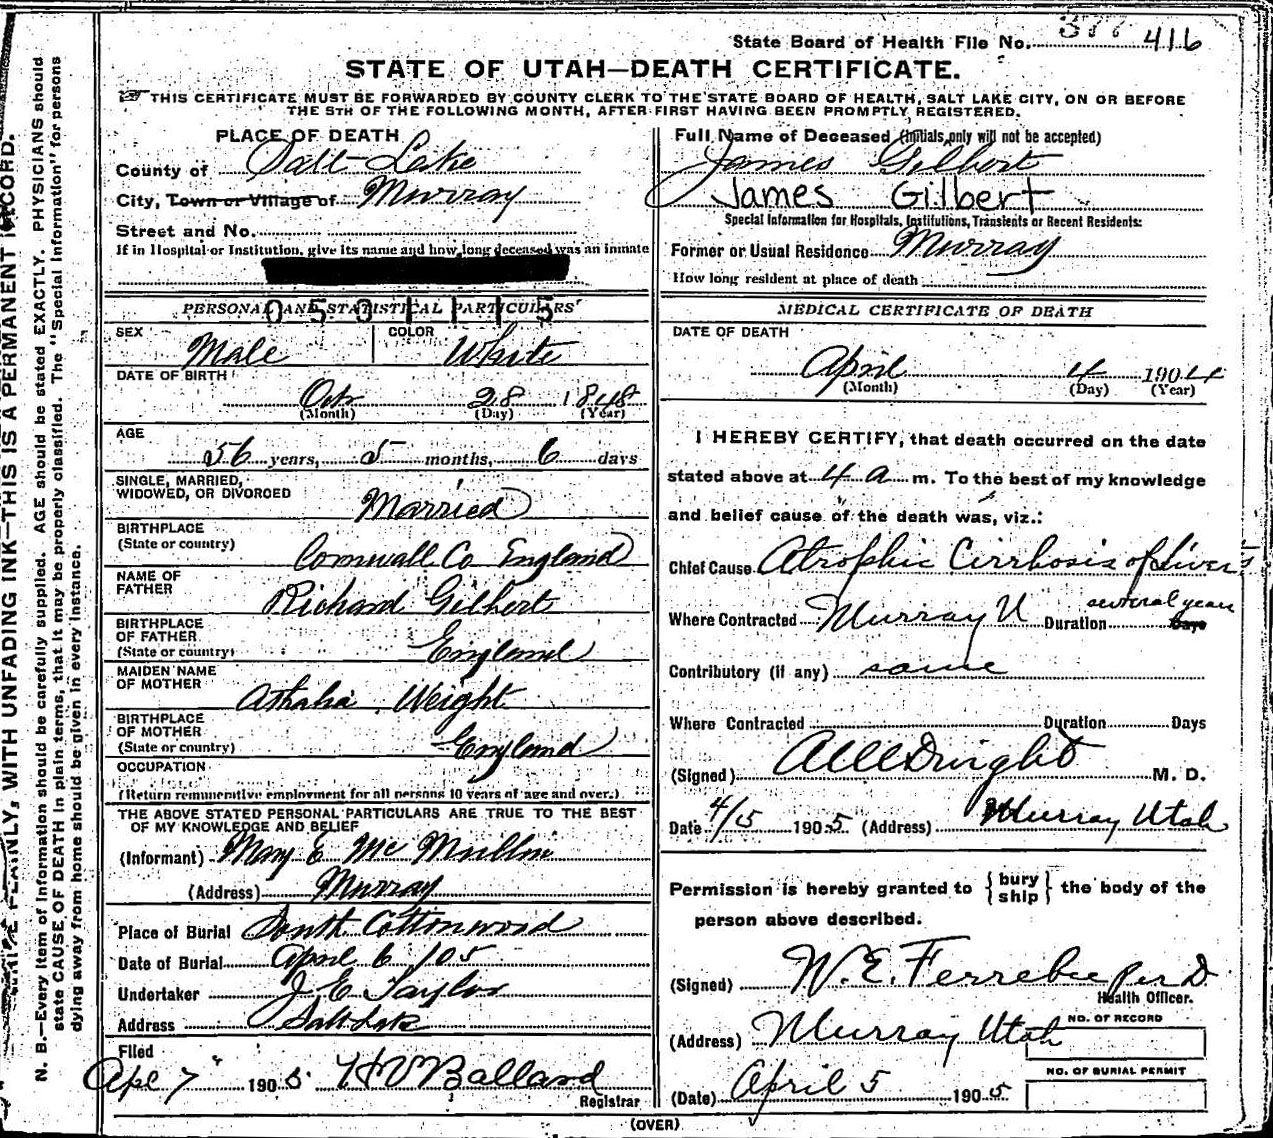 State Board of Health File No. 377 416
STATE OF UTAH—DEATH CERTIFICATE.
THIS CERTIFICATE MUST BE FORWARDED BY COUNTY CLERK TO THE STATE BOARD OF HEALTH, SALT LAKE CITY, ON OR BEFORE
THE 5TH OF THE FOLLOWING MONTH, AFTER FIRST HAVING BEEN PROMPTLY REGISTERED.
PLACE OF DEATH
County of Salt Lake
City, Town or Village of Murray
Street and No.
If in Hospital or Institution, give its name and how long deceased was an inmate
PERSONAL AND STATISTICAL PARTICULARS
0531115
SEX
Male
COLOR
White
DATE OF BIRTH
Oct 28 1848
(Month) (Day) (Year)
AGE
56 years, 5 months, 6 days
SINGLE, MARRIED,
WIDOWED, OR DIVORCED
Married
BIRTHPLACE
(State or country)
Cornwall Co England
NAME OF
FATHER
Richard Gilbert
BIRTHPLACE
OF FATHER
(State or country)
England
MAIDEN NAME
OF MOTHER
Weight
BIRTHPLACE
OF MOTHER
(State or country)
England
OCCUPATION
(Return remunerative employment for all persons 10 years of age and over.)
THE ABOVE STATED PERSONAL PARTICULARS ARE TRUE TO THE BEST
OF MY KNOWLEDGE AND BELIEF
(Informant) Mary E Mc
(Address) Murray
Place of Burial South Cottonwood
Date of Burial April 6 105
Undertaker J E Taylor
Address Salt Lake
Filed
Apl 7 1905 Balland
Registrar
Full Name of Deceased (initials only will not be accepted)
James Gilbert
James Gilbert
Special Information for Hospitals, Institutions, Transients or Recent Residents:
Former or Usual Residence Murray
How long resident at place of death
MEDICAL CERTIFICATE OF DEATH
DATE OF DEATH
April 4 1904
(Month) (Day) (Year)
I HEREBY CERTIFY, that death occurred on the date
stated above at 4 a m. To the best of my knowledge
and belief cause of the death was, viz.:
Chief Cause Atrophic Cirrhosis of Liver
Where Contracted Murray U Duration several years Days
Contributory (if any) same
Where Contracted Duration Days
(Signed) M. D.
Date 4/5 1905 (Address) Murray Utah
Permission is hereby granted to {bury ship} the body of the
person above described.
(Signed) W. E. Ferrebee per D
Health Officer.
(Address) Murray Utah
NO. OF RECORD
NO. OF BURIAL PERMIT
(Date) April 5 1905
(OVER)
WRITE PLAINLY, WITH UNFADING INK—THIS IS A PERMANENT RECORD.
N. B.—Every item of Information should be carefully supplied. AGE should be stated EXACTLY. PHYSICIANS should
state CAUSE OF DEATH in plain terms, that it may be properly classified. The "Special Information" for persons
dying away from home should be given in every instance.